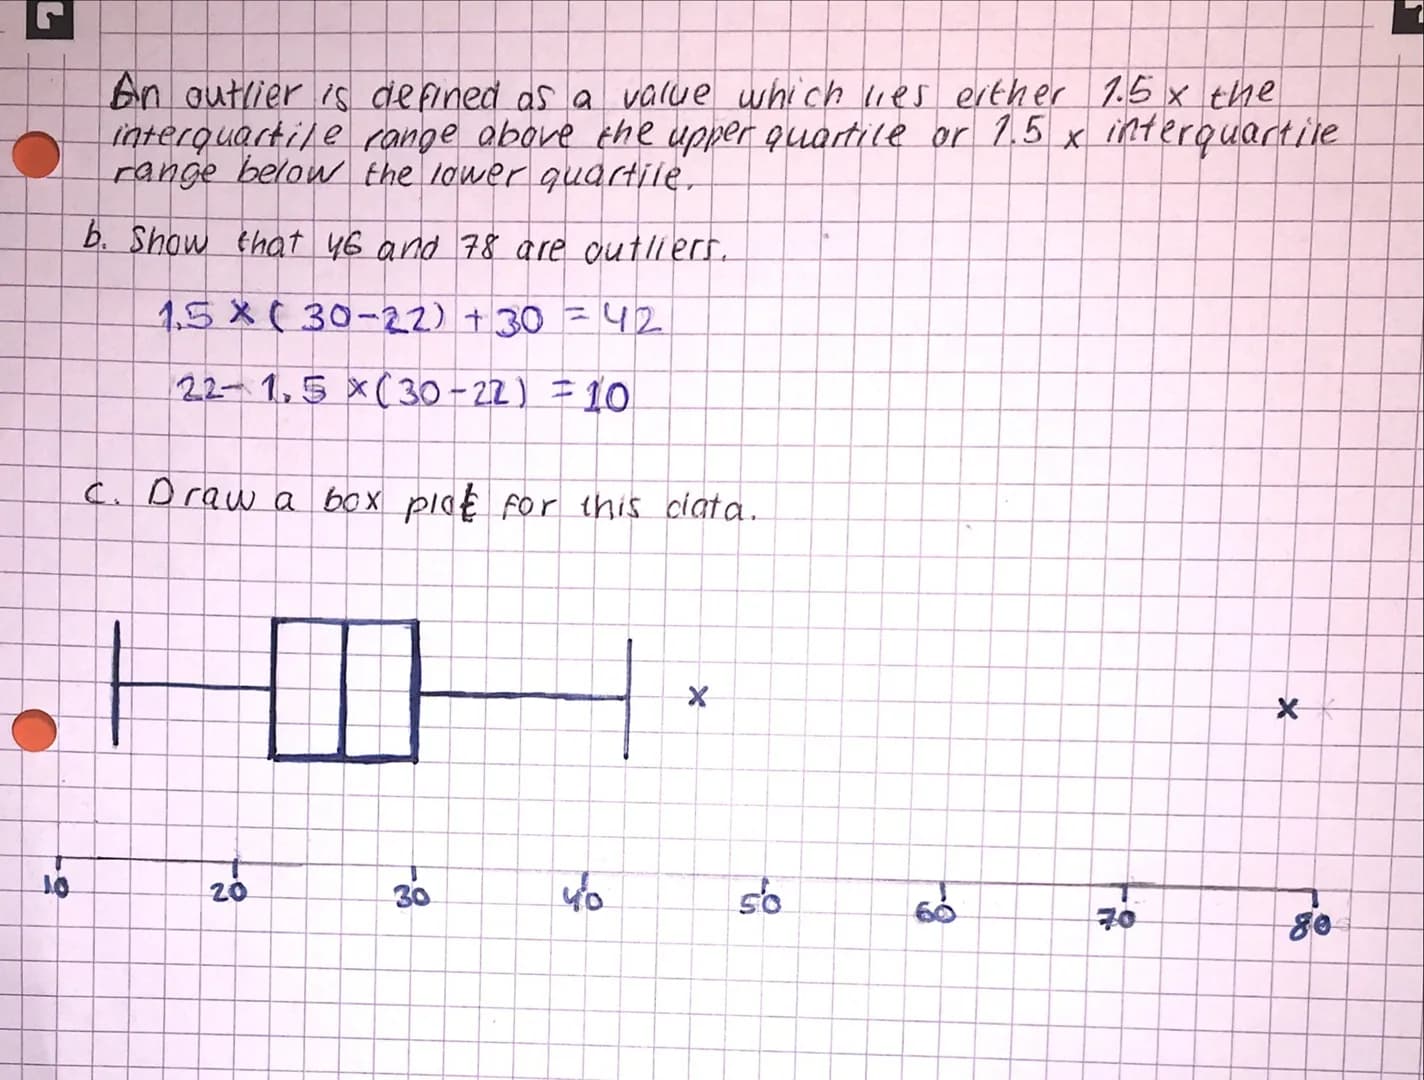 An outlier is defined as a value which lies either 1.5 x the
interquartile range above the upper quartile or 1.5 x interquartile
range below the lower quartile.
b. Show that 46 and 78 are outliers.
1.5 × (30-22) + 30 = 42
22- 1.5 ×(30-22) = 10
c. Draw a box plot for this data.
x x
10 20 30 40 50 60 70 80